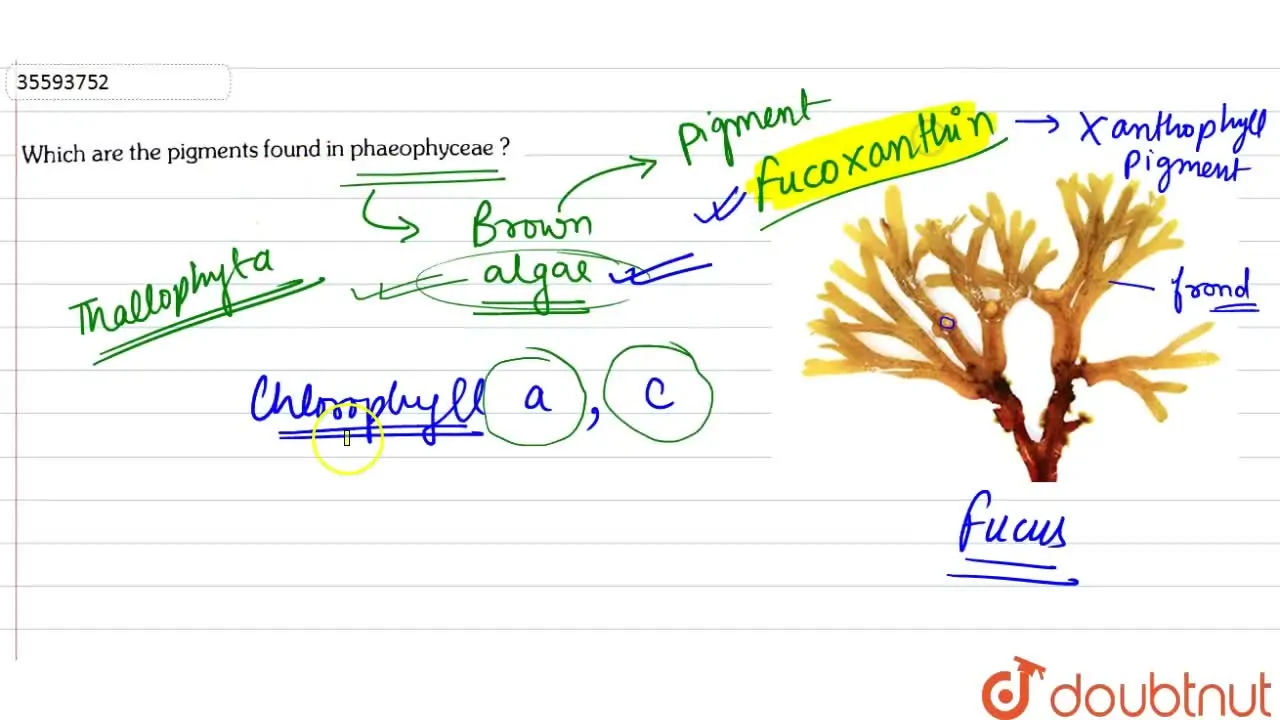 35593752
Which are the pigments found in phaeophyceae ?
Pigment
fucoxanthin → Xanthophyll
Pigment
Brown
algae
Thallophyta
frond
Chlorophyll a , c
fucus
doubtnut